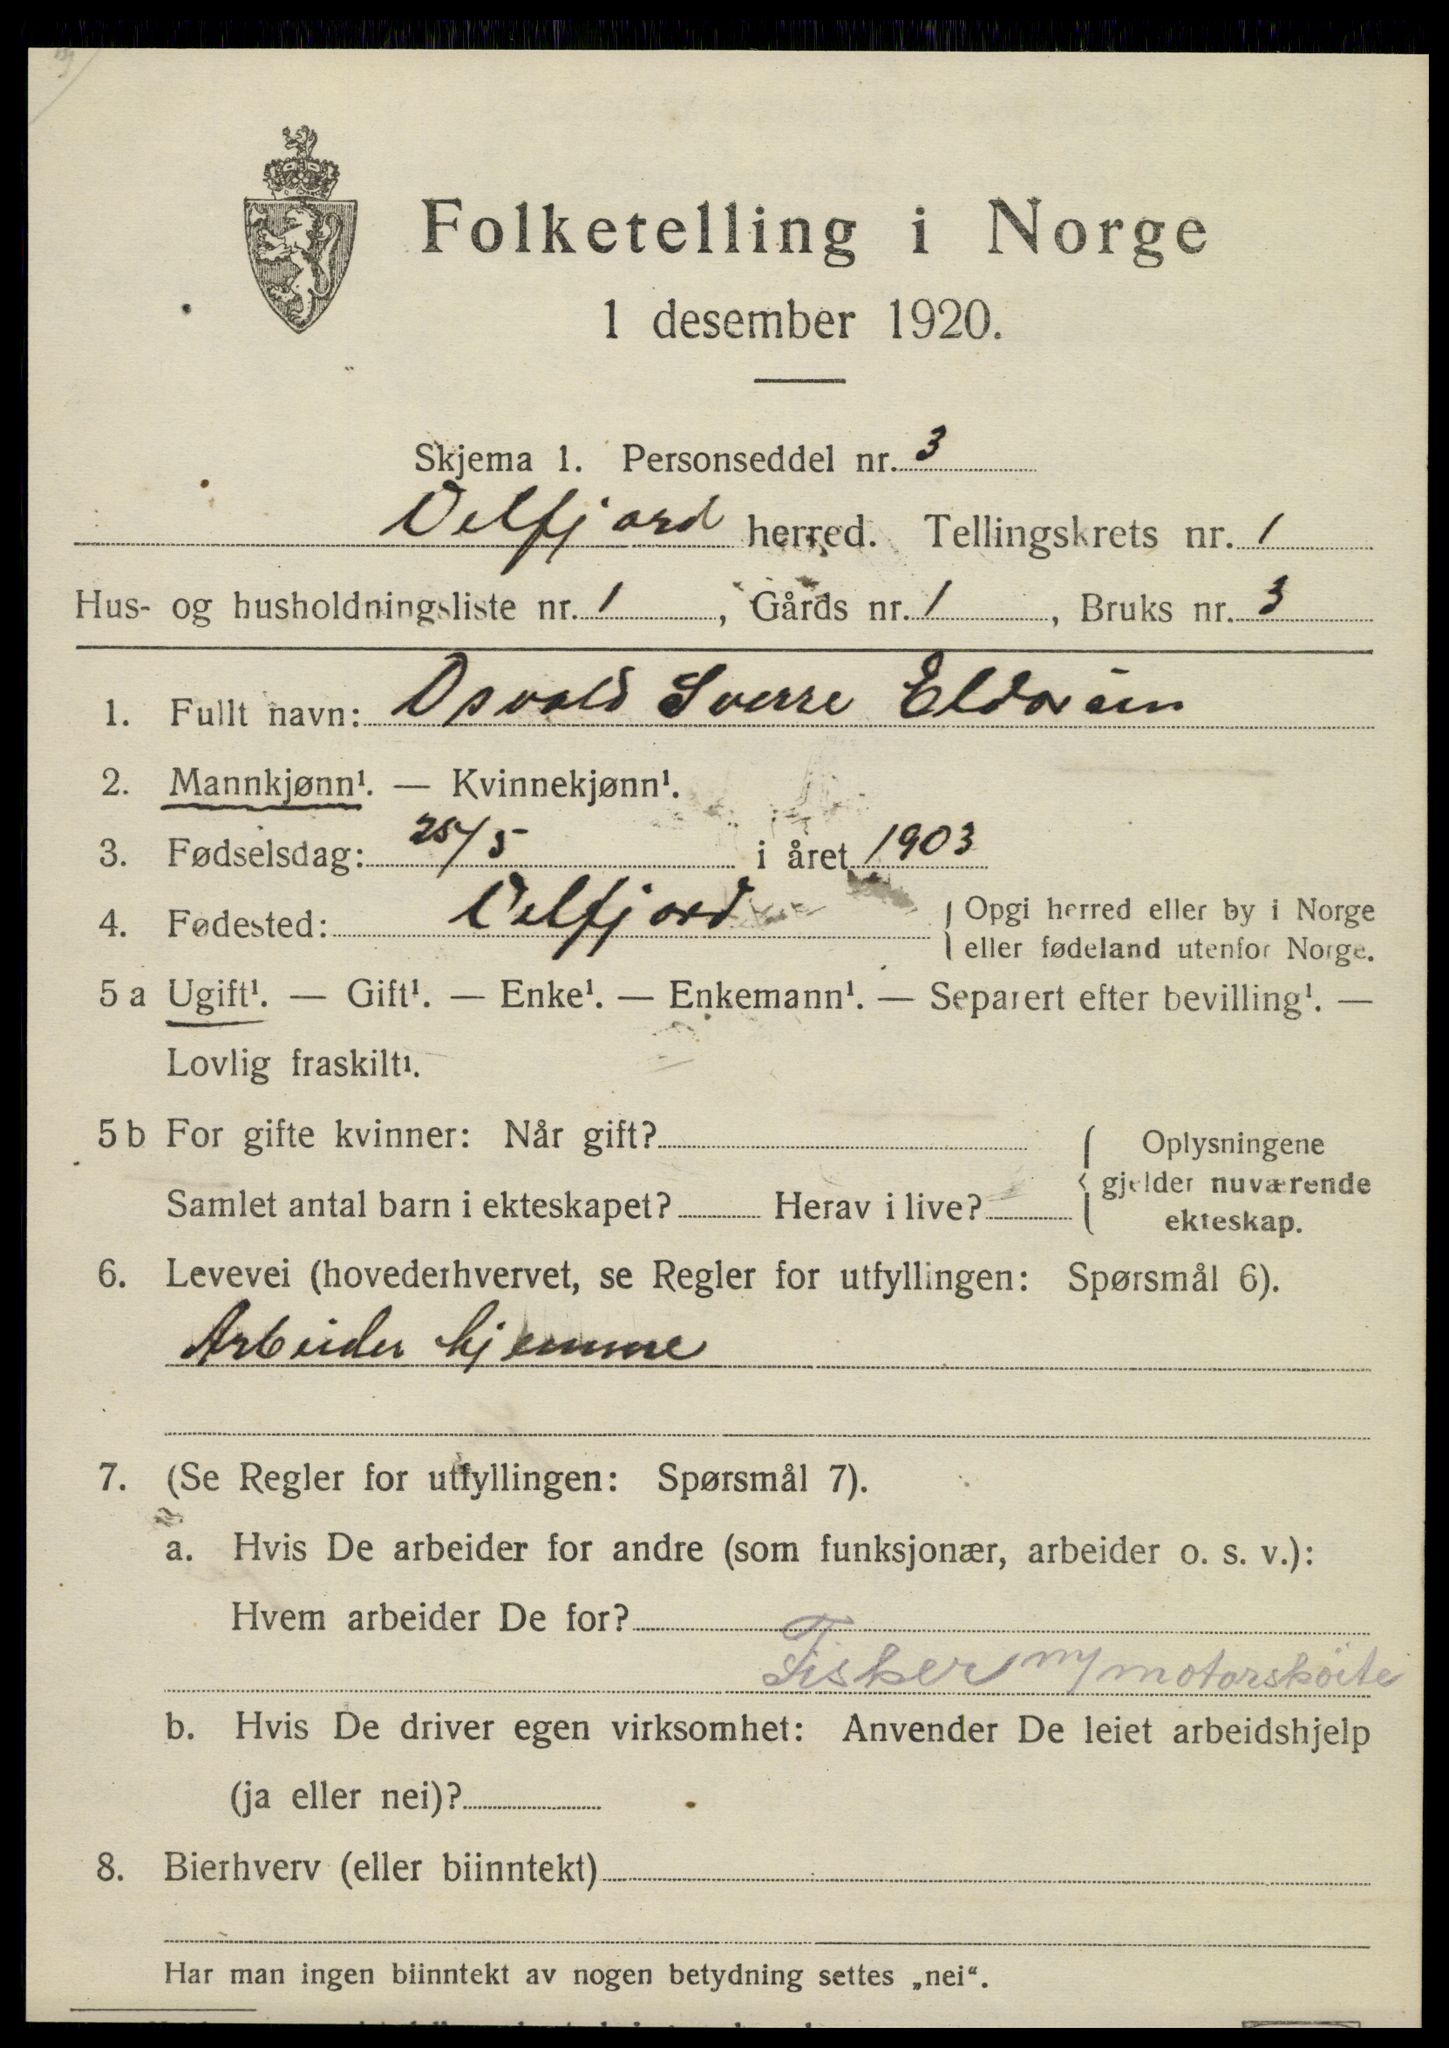 Folketelling i Norge
1 desember 1920.
Skjema 1. Personseddel nr. 3
Velfjord herred. Tellingskrets nr. 1
Hus- og husholdningsliste nr. 1, Gårds nr. 1, Bruks nr. 3
1. Fullt navn: Osvald Sverre
2. Mannkjønn¹. — Kvinnekjønn¹.
3. Fødselsdag: 25/5 i året 1903
4. Fødested: Velfjord { Opgi herred eller by i Norge
eller fødeland utenfor Norge.
5 a Ugift¹. — Gift¹. — Enke¹. — Enkemann¹. — Separert efter bevilling¹. —
Lovlig fraskilt¹.
5 b For gifte kvinner: Når gift? { Oplysningene
gjelder nuværende
ekteskap.
Samlet antal barn i ekteskapet? Herav i live?
6. Levevei (hovederhvervet, se Regler for utfyllingen: Spørsmål 6).
Arbeider hjemme
7. (Se Regler for utfyllingen: Spørsmål 7).
a. Hvis De arbeider for andre (som funksjonær, arbeider o. s. v.):
Hvem arbeider De for?
Fisker m/ motorsköite
b. Hvis De driver egen virksomhet: Anvender De leiet arbeidshjelp
(ja eller nei)?
8. Bierhverv (eller biinntekt)
Har man ingen biinntekt av nogen betydning settes „nei“.